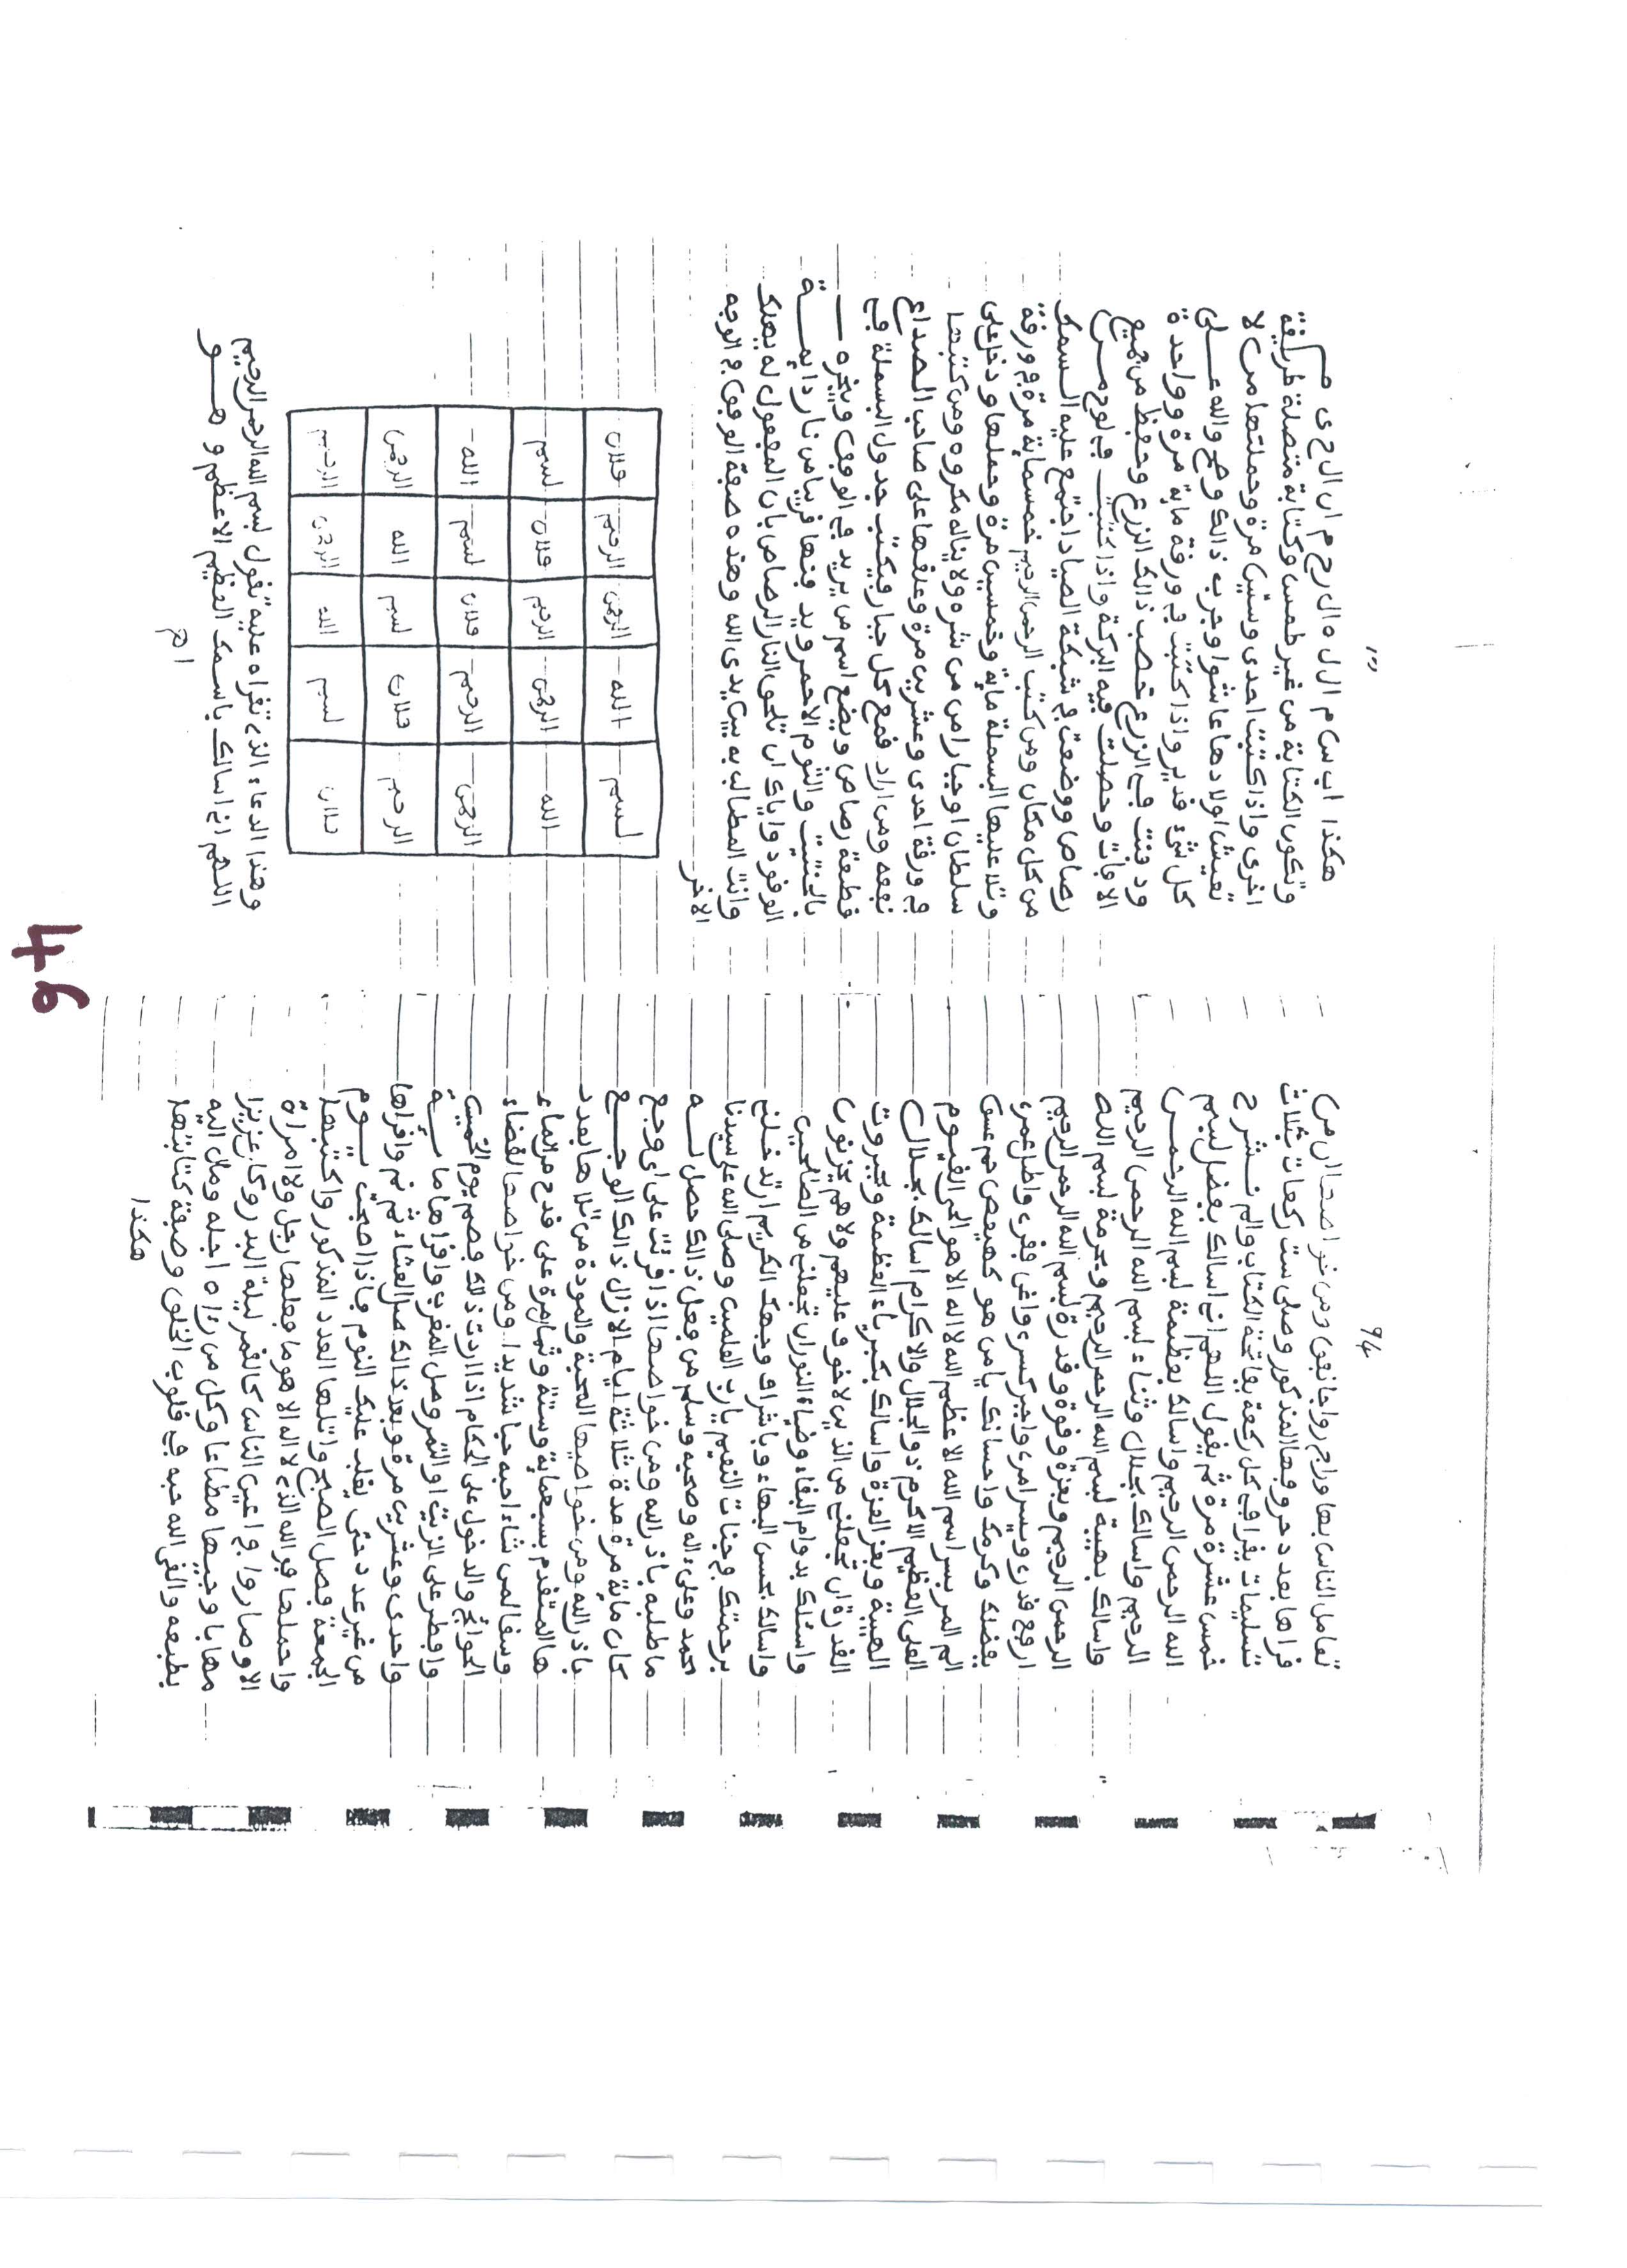 94
تعامل الناس بها وراج رواجا نفق ومن خواصها ان من
قراها بعدد حروفها المذكور وصلى ست ركعات بثلاث
تسليمات يقرا في كل ركعة بفاتحة الكتاب والم نشرح
خمس عشرة مرة ثم يقول اللهم اني اسالك بفضل بسم
الله الرحمن الرحيم واسالك بعظمة بسم الله الرحمن
الرحيم واسالك بجلال وثناء بسم الله الرحمن الرحيم
واسالك بهيبة بسم الله الرحمن الرحيم وبحرمة بسم الله
الرحمن الرحيم وبعزة وقوة وقدرة بسم الله الرحمن الرحيم
ارفع قدري ويسر امري واجبر كسري واغن فقري واطل عمري
بفضلك وكرمك واحسانك يا من هو كهيعص حم عسق
الم المر بسر اسم الله الاعظم الله لا اله الا هو الحي القيوم
العلي العظيم الاكرم ذو الجلال والاكرام اسالك بجلال
الهيبة وبعز العزة واسالك بكبرياء العظمة وبجبروت
القدرة ان تجعلني من الذين لا خوف عليهم ولا هم يحزنون
واسئلك بدوام البقاء وضياء النور ان تجعلني من الصالحين
واسالك بحسن البهاء وباشراق وجهك الكريم ان تدخلني
برحمتك في جنات النعيم يا رب العلمين وصلى الله على سيدنا
محمد وعلى ءاله وصحبه وسلم من فعل ذالك حصل لـــه
ما طلبه باذن الله ومن خواصها اذا قرئت على اي وجع
كان ماية مرة مدة ثلاثة ايام الا زال ذالك الوجـــع
باذن الله ومن خواصها المحبة والمودة من تلاها بعدد
ها المتقدم بسبعماية وستة وثمانين مرة على قدح من الماء
وسقا لمن شاء احبه حبا شديدا ومن خواصها لقضاء
الحوائج والدخول على الحكام اذا اردت ذلك فصم يوم الخميس
وافطر على الزيت او التمر وصل المغرب واقراها مايـــة
واحدى وعشرين مرة وبعد ذالك صل العشاء ثم واقراها
من غير عدد حتى يغلب عليك النوم فاذا اصبحت يـــوم
الجمعة فصل الصبح واتلها العدد المذكور واكتبها
واحملها فو الله الذي لا اله الا هو ما فعلها رجل ولا امراة
الا وصاروا في اعين الناس كالقمر ليلة البدر وكان عزيزا
مهابا وجيها مطاعا وكل من رءاه اجله ومال اليه
بطبعه والقى الله حبه في قلوب الخلق وصفة كتابتها
هكذا
هكذا اب س م ال ل ه ال ر ح م ان ال ر ح ي م
وتكون الكتابة من غير طمس وكتابة متصلة طريقة
اخرى واذا كتبت احدى وستين مرة وحملتها من لا
تعيش اولادها عاشوا وجرب ذالك وصح والله عـــلى
كل شيء قدير واذا كتبت في ورقة ماية مرة وواحدة
ودفنت في الزرع خصب ذالك الزرع وحفظ من جميع
الافات وحصلت فيه البركة واذا كتبت في لوح مـــن
رصاص ووضعت في شبكة الصياد اجتمع عليه السمك
من كل مكان ومن كتب الرحمن الرحيم خمسماية مرة في ورقة
وتلا عليها البسملة ماية وخمسين مرة وحملها ودخل على
سلطان او جبار امن من شره ولا يناله مكروه ومن كتبها
في ورقة احدى وعشرين مرة وعلقها على صاحب الصداع
نفعه ومن اراد قمع كل جبار فيكتب جدول البسملة في
قطعة رصاص ويضع اسم من يريد في الوفق ويبخره
بالحنتيت والثوم الاحمر ويدفنها قريبا من نار دايمـــة
الوقود واياك ان تلحق النار الرصاص بان المفعول له يهلك
وانت المطالب به بين يدي الله وهذه صفة الوفق في الوجه
الاخر
بسم الله الرحمن الرحيم فلان
الله الرحمن الرحيم فلان بسم
الرحمن الرحيم فلان بسم الله
الرحيم فلان بسم الله الرحمن
فلان بسم الله الرحمن الرحيم
وهذا الدعاء الذي تقراه عليه تقول بسم الله الرحمن الرحيم
اللهم اني اسالك باسمك العظيم الاعظم وهـــو
46